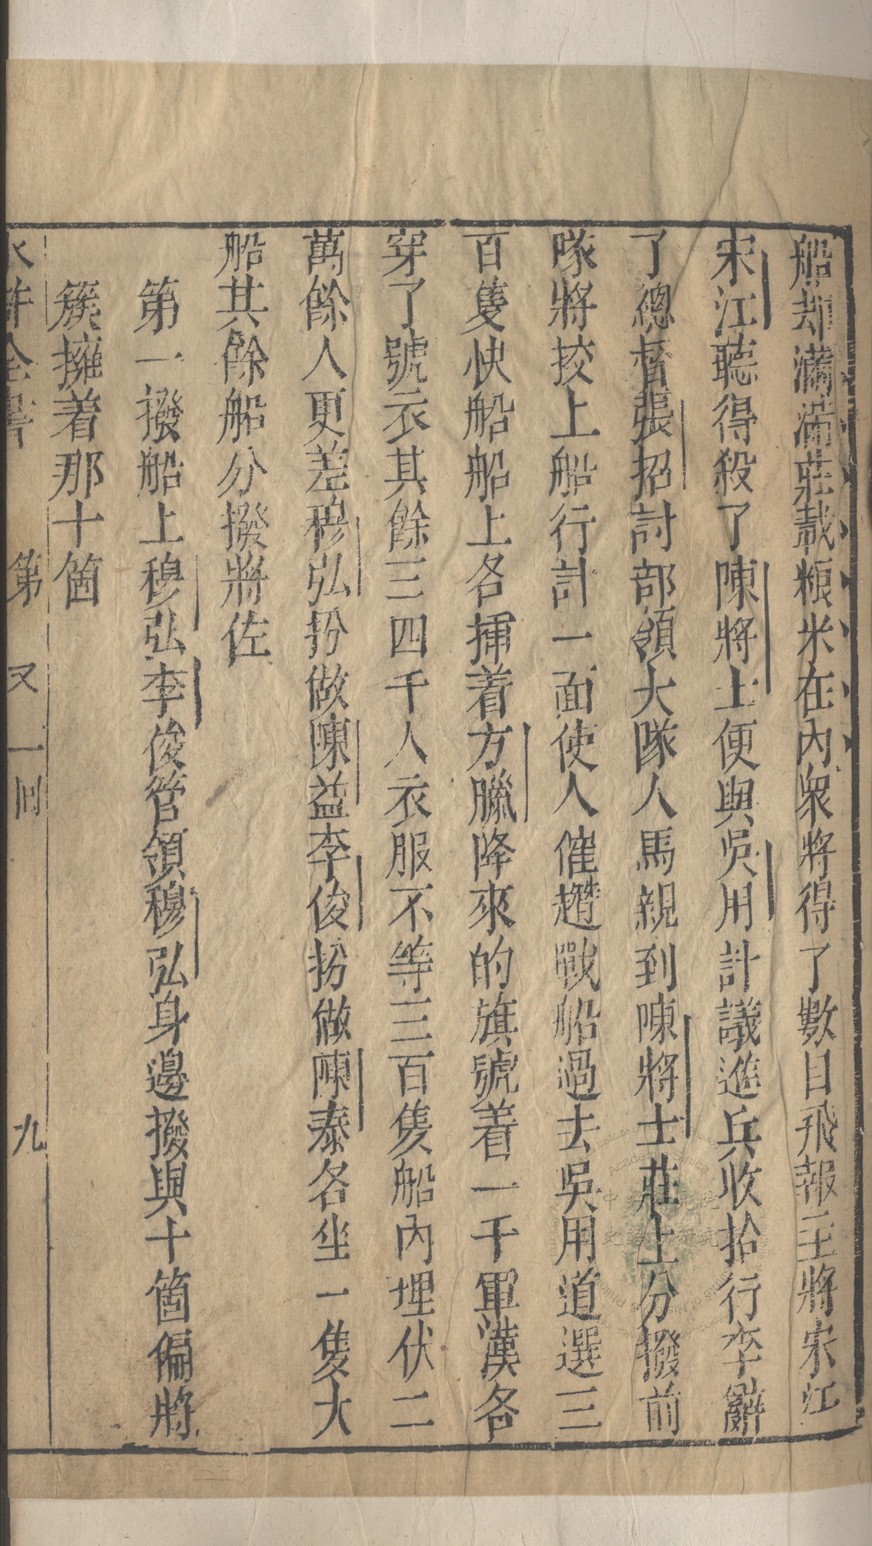 船却滿滿莊載粮米在內衆將得了數目飛報主將宋江
宋江聽得殺了陳將士便與吳用計議進兵收拾行李辭
了總督張招討部領大隊人馬親到陳將士莊上分撥前
隊將挍上船行計一面使人催趲戰船過去吳用道選三
百隻快船船上各揷着方臘降來的旗號着一千軍漢各
穿了號衣其餘三四千人衣服不等三百隻船內埋伏二
萬餘人更差穆弘扮做陳益李俊扮做陳泰各坐一隻大
船其餘船分撥將佐
第一撥船上穆弘李俊管領穆弘身邊撥與十箇偏將
簇擁着那十箇
水滸全書 第 又 一回 九